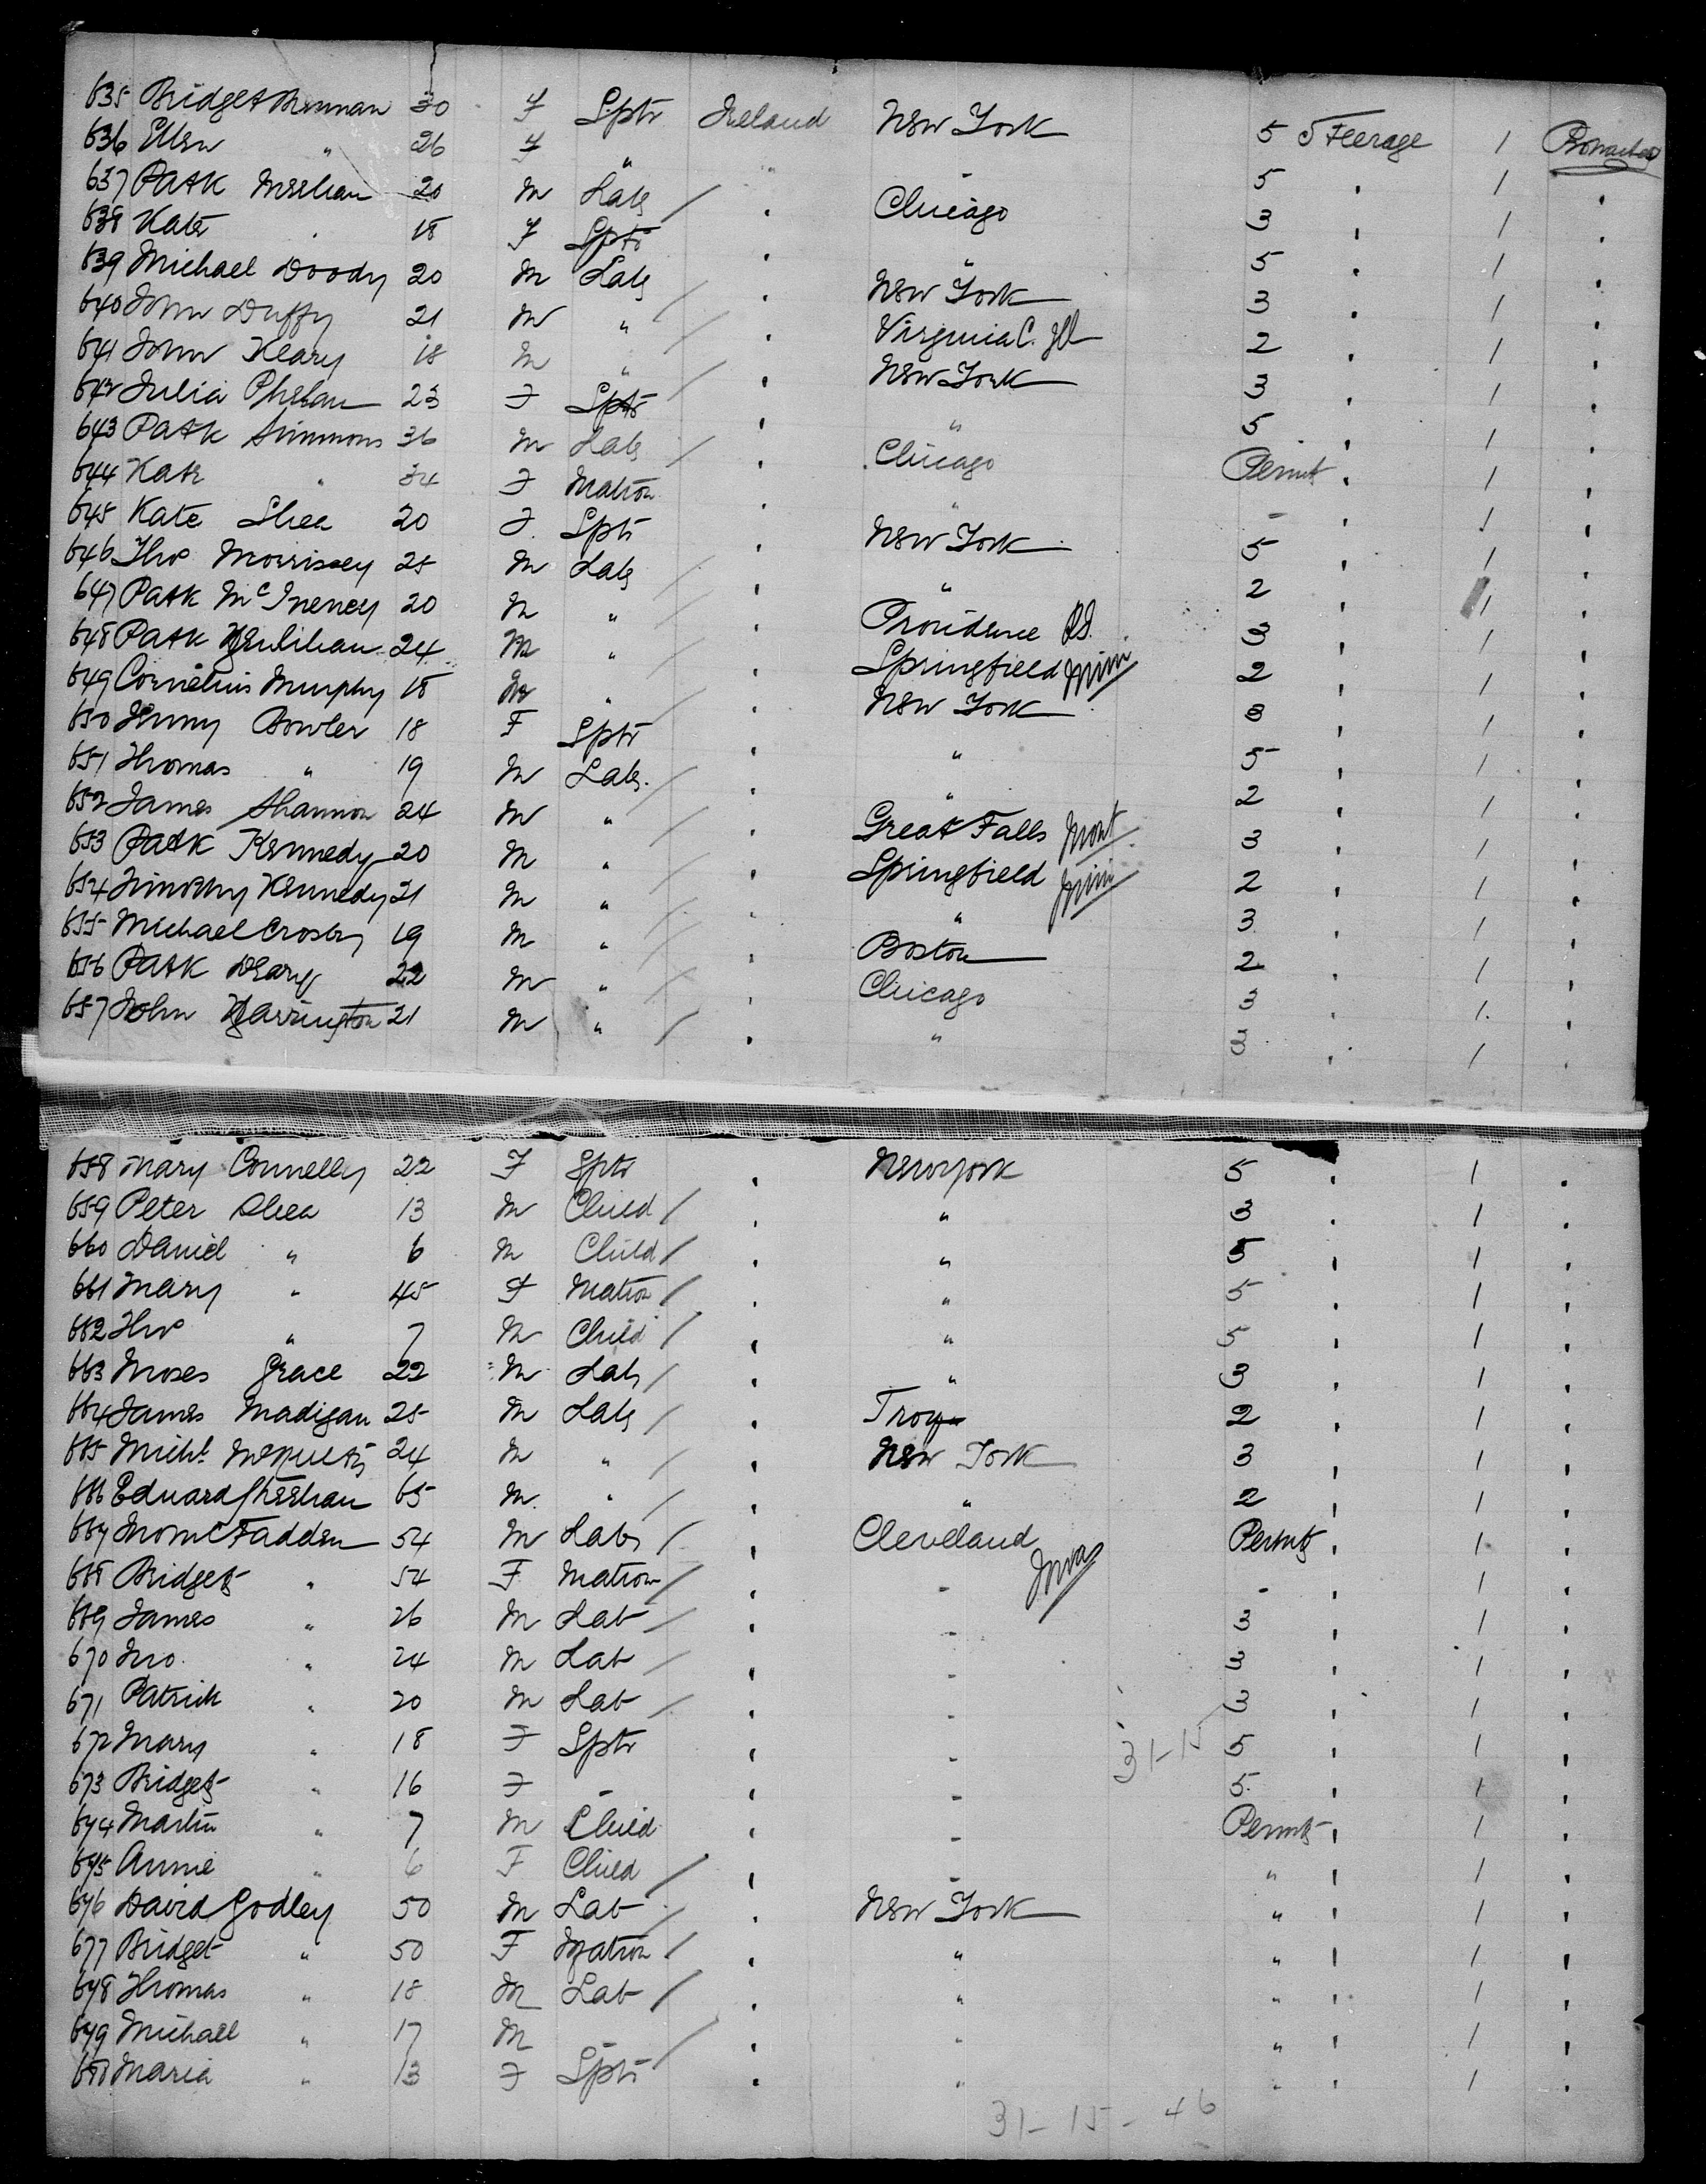 635 Bridget Brennan 30 F Sptr Ireland New York 5 Steerage 1
636 Ellen " 26 F " " " 5 " 1 "
637 Patk Meehan 20 M Lab / " Chicago 3 " 1 "
638 Kate " 18 F Sptr " " 5 " 1 "
639 Michael Doody 20 M Lab / " New York 3 " 1 "
640 John Duffy 21 M " / " Virginia C. 2 " 1 "
641 John Keary 18 M " / " New York 3 " 1 "
642 Julia Phelan 23 F Sptr " " 5 " 1 "
643 Patk Simmons 36 M Lab / " Chicago Permit " 1 "
644 Kate " 34 F Matron " " " " 1 "
645 Kate Shea 20 F Sptr " New York 5 " 1 "
646 Thos Morrissey 25 M Lab / " " 2 " 1 "
647 Patk McInerney 20 M " / " Providence RI. 3 " 1 "
648 Patk 24 M " / " Springfield 2 " 1 "
649 Cornelius Murphy 18 M " / " New York 3 " 1 "
650 Jenny Bowler 18 F Sptr " " 5 " 1 "
651 Thomas " 19 M Lab. / " " 2 " 1 "
652 James Shannon 24 M " / " Great Falls Mont 3 " 1 "
653 Patk Kennedy 20 M " / " Springfield 2 " 1 "
654 Timothy Kennedy 21 M " / " " 3 " 1 "
655 Michael Crosby 19 M " / " Boston 2 " 1 "
656 Patk Deary 22 M " / " Chicago 3 " 1 "
657 John Harrington 21 M " / " " " 1 "
658 Mary Connelly 22 F Sptr " New York 5 " 1 "
659 Peter Shea 13 M Child / " " 3 " 1 "
660 Daniel " 6 M Child / " " 5 " 1 "
661 Mary " 45 F Matron / " " 5 " 1 "
662 Thos " 7 M Child / " " 5 " 1 "
663 Moses Grace 22 M Lab / " " 3 " 1 "
664 James Madigan 25 M Lab / " Troy 2 " 1 "
665 Michl McNulty 24 M " / " New York 3 " 1 "
666 Edward Sheehan 65 M " / " " 2 " 1 "
667 McFadden 54 M Lab / " Cleveland Iowa Permit " 1 "
668 Bridget " 54 F Matron / " " " " 1 "
669 James " 26 M Lab / " " 3 " 1 "
670 Jno. " 24 M Lab / " " 3 " 1 "
671 Patrick " 20 M Lab / " " 3 " 1 "
672 Mary " 18 F Sptr " " 31-15 5 " 1 "
673 Bridget " 16 F " " " 5 " 1 "
674 Martin " 7 M Child " " Permit " 1 "
675 Annie " 6 F Child / " " " " 1 "
676 David Godley 50 M Lab / " New York " " 1 "
677 Bridget " 50 F Matron / " " " " 1 "
678 Thomas " 18 M Lab / " " " " 1 "
679 Michael " 17 M " / " " " " 1 "
680 Maria " 13 F Sptr " " " " 1 "
31-15-46